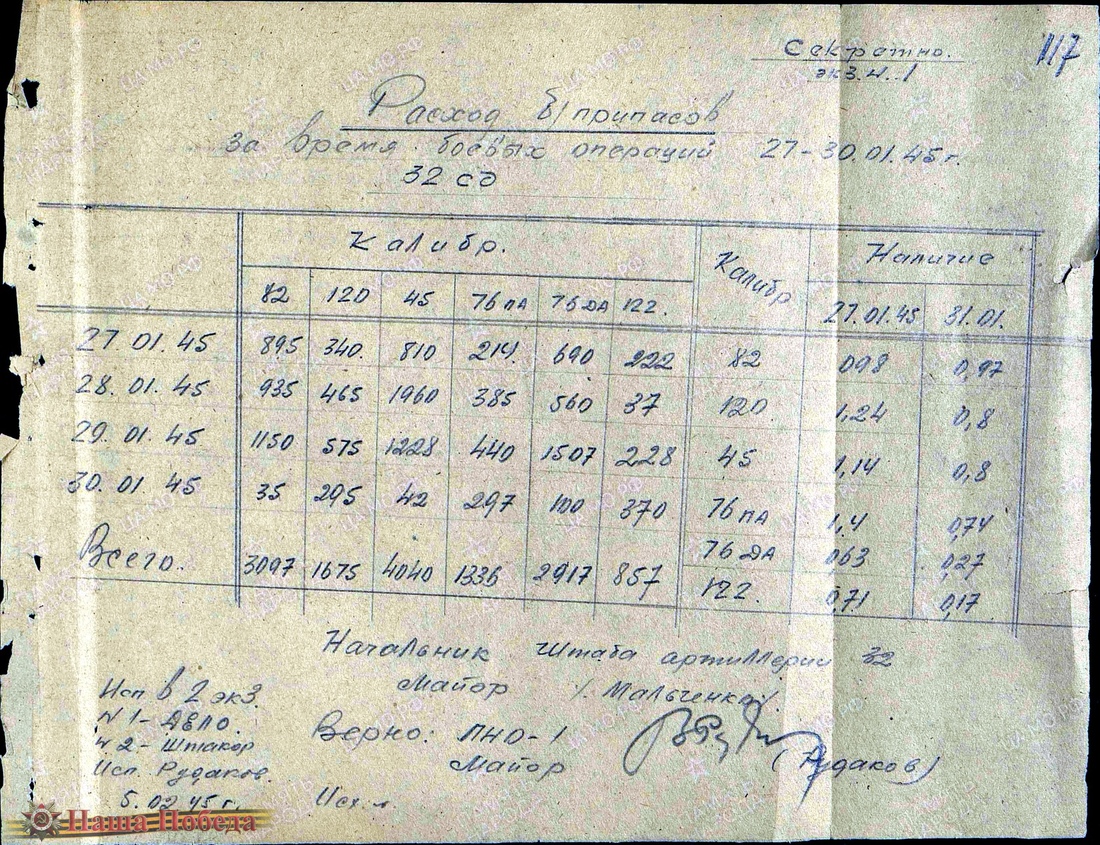 Секретно.
экз. N. 1
117
Расход б/припасов
за время боевых операций 27-30.01.45 г.
32 сд
Калибр. Калибр Наличие
82 120 45 76 ПА 76 ДА 122. 27.01.45 31.01.
27.01.45 895 340. 810 214 690 222 82 098 0,97
28.01.45 935 465 1960 385 560 37 120 1,24 0,8
29.01.45 1150 575 1228 440 1507 228 45 1,14 0,8
30.01.45 35 295 42 297 100 370 76 ПА 1,4 0,74
76 ДА 063 0,27
Всего. 3097 1675 4040 1336 2917 857 122. 0,71 0,17
Начальник штаба артиллерии 32
Майор /Мальченко/.
Исп в 2 экз.
N 1 - Дело.
N 2 - Штакор
Исп. Рудаков.
5.02.45 г.
Верно: ПНО-1
Майор (Рудаков)
Исх. л.
Наша Победа